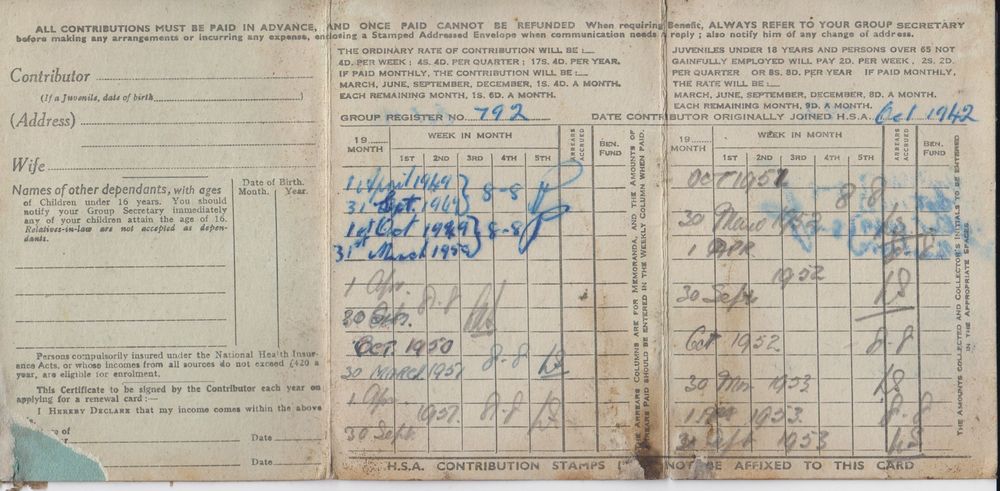 ALL CONTRIBUTIONS MUST BE PAID IN ADVANCE, AND ONCE PAID CANNOT BE REFUNDED When requiring Benefit, ALWAYS REFER TO YOUR GROUP SECRETARY
before making any arrangements or incurring any expense, enclosing a Stamped Addressed Envelope when communication needs a reply; also notify him of any change of address.
Contributor
(If a Juvenile, date of birth)
(Address)
Wife
Names of other dependants, with ages
of Children under 16 years. You should
notify your Group Secretary immediately
any of your children attain the age of 16.
Relatives-in-law are not accepted as depen-
dants.
Date of Birth.
Month. Year.
Persons compulsorily insured under the National Health Insur-
ance Acts, or whose incomes from all sources do not exceed £420 a
year, are eligible for enrolment.
This Certificate to be signed by the Contributor each year on
applying for a renewal card :—
I HEREBY DECLARE that my income comes within the above
of
Date
Date
THE ORDINARY RATE OF CONTRIBUTION WILL BE :—
4D. PER WEEK ; 4S. 4D. PER QUARTER ; 17S. 4D. PER YEAR,
IF PAID MONTHLY, THE CONTRIBUTION WILL BE :—
MARCH, JUNE, SEPTEMBER, DECEMBER, 1S. 8D. A MONTH.
EACH REMAINING MONTH, 1S. 6D. A MONTH.
GROUP REGISTER NO. 792
19
MONTH
WEEK IN MONTH
1ST 2ND 3RD 4TH 5TH
ARREARS ACCRUED
BEN. FUND
1 April 1949
31 Sept. 1949 8-8
1st Oct 1949
31st March 1950 8-8
1 Apr.
30 8-8
Oct. 1950
30 March 1951 8-8
1 Apr.
1951 8-8
30 Sept.
THE ARREARS COLUMNS ARE FOR MEMORANDA, AND THE AMOUNTS OF
ARREARS PAID SHOULD BE ENTERED IN THE WEEKLY COLUMN WHEN PAID.
JUVENILES UNDER 18 YEARS AND PERSONS OVER 65 NOT
GAINFULLY EMPLOYED WILL PAY 2D. PER WEEK, 2S. 2D.
PER QUARTER OR 8S. 8D. PER YEAR IF PAID MONTHLY,
THE RATE WILL BE :—
MARCH, JUNE, SEPTEMBER, DECEMBER, 8D. A MONTH.
EACH REMAINING MONTH, 9D. A MONTH.
DATE CONTRIBUTOR ORIGINALLY JOINED H.S.A. Oct 1942
19
MONTH
WEEK IN MONTH
1ST 2ND 3RD 4TH 5TH
ARREARS ACCRUED
BEN. FUND
OCT 1951 8 8
30 1952
1 APR.
1952
30 Sept
Oct 1952 8-8
30 1953
1 1953. 8-8
Sept 1953
THE AMOUNTS COLLECTED AND COLLECTOR'S INITIALS TO BE ENTERED
IN THE APPROPRIATE SPACES.
H.S.A. CONTRIBUTION STAMPS NOT BE AFFIXED TO THIS CARD